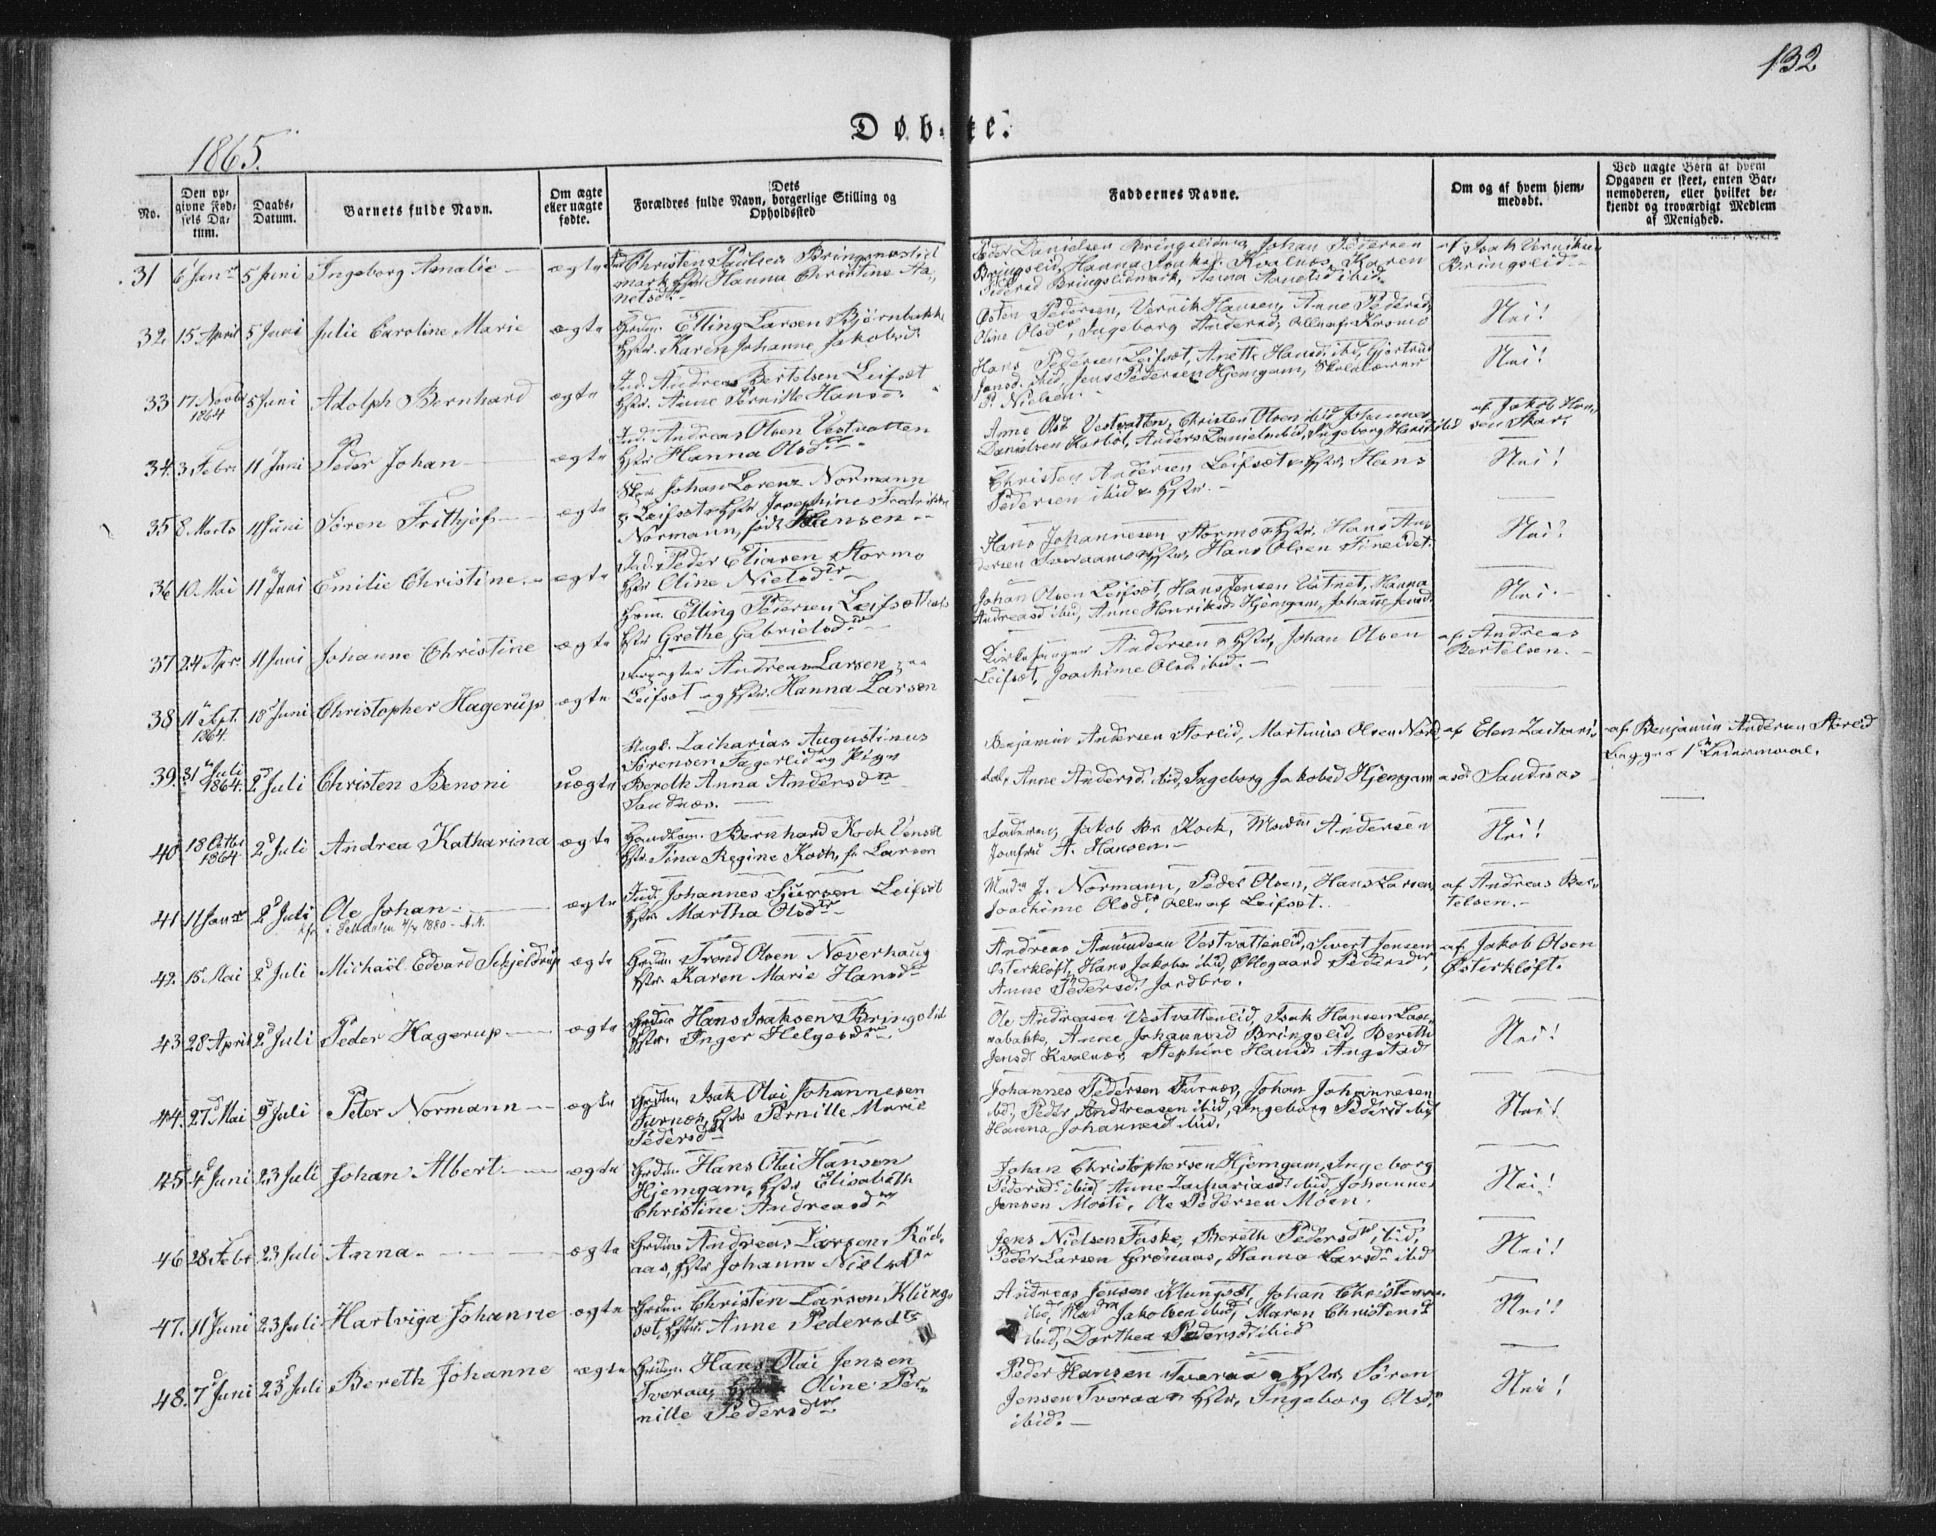 132
Døb-te.
1865.
No.
Den op-
givne Fød-
sels Da-
tum.
Daabs-
Datum.
Barnets fulde Navn.
Om ægte
eller uægte
fødte.
Dets
Forældres fulde Navn, borgerlige Stilling og
Opholdssted
Faddernes Navne.
Om og af hvem hjem-
medøbt.
Ved uægte Børn af hvem
Opgaven er skeet, enten Bar-
nemoderen, eller hvilket be-
kjendt og troværdigt Medlem
af Menighed.
31 6 Janr 5 Juni Ingeborg Amalie ægte
Christen Paulsen Bringsmoslid
mark Hstr Hanna Christine
Peder Danielsen Bringslidmark, Johan Pedersen
Bringslid, Hanna Isaksd. Kvalnæs, Karen
Pedersd Bringslidmark, Anna ibid.
af Isak
Bringslid
32. 15 April 5 Juni Julie Caroline Marie ægte
Grdm. Elling Larsen Bjørnbakke
Hstr. Karen Johanne Jakobsd.
Østen Pedersen, Hansen, Anne Pedersd,
Oline Olsdtr, Ingeborg Andersd, Alle af Kosmo
Nei!
33 17 Novbr 1864 5 Juni Adolph Bernhard ægte
Ind. Andreas Bertelsen Leifsæt
Hstr. Anne Pernille Hansd.
Hans Pedersen Leifsæt, Anette Hansd. ibid, Gjertrud
Jensd. ibid, Jens Pedersen Hjemgam, Skolelærer
P. Nielsen.
Nei!
34. 3 Febr 11 Juni Peder Johan ægte
Ind. Andreas Olsen Vestvatten
Hstr Hanna Olsdtr
Anne Olsd Vestvatten, Christen Olsen ibid, Johannes
Danielsen Karbøl, Anders Danielsen ibid, Ingeborg Hansd ibid
af Jakob Han-
sen Skar.
35 8 Marts 11 Juni Søren Frithjof ægte
Johan Lorenz Normann
Leifsæt Hstr Josephine Fredrikke
Normann, født Hansen
Christen Andersen Leifsæt & Hstr, Hans
Pedersen ibid & Hstr.
Nei!
36 10. Mai 11 Juni Emilie Christine ægte
Ind. Peder Eliasen Stormo
Hstr Oline Nielsdtr
Hans Johannesen Stormo & Hstr. Hans An-
dersen Tveraamo & Hstr, Hans Olsen Fineidet.
Nei!
37 24 Apr. 11 Juni Johanne Christine ægte
Hom. Elling Pedersen Leifsæt
Hstr Grethe Gabrielsdtr
Johan Olsen Leifsæt, Hans Jensen Vatnet, Hanna
Andreasd ibid, Anne Henriksd Hjemgam, Johanne Jensd.
Nei.
38 11 Sept. 1864. 18 Juni Christopher Hagerup ægte
Andreas Larsen
Leifsæt og Hstr. Hanna Larsen
Kirkesanger Andersen & Hstr, Johan Olsen
Leifsæt, Joachime Olsd ibid.
af Andreas
Bertelsen.
39. 31 Juli 1864. 2 Juli Christen Benoni uægte
Ungk. Zacharias Augustinus
Sørensen Fagerlid og Pige
Bereth Anna Andersdtr
Sandnæs.
Benjamin Andersen Storlid, Martinus Olsen Nord-
dal, Anne Andersd. ibid, Ingeborg Jakobsd Hjemgam
af Elen Zachari-
asd Sandnæs
af Benjamin Andersen Storlid
Begges 1ste Leiermaal.
40 18 Octbr 1864 2 Juli Andrea Katharina ægte
Handlsm. Bernhard Kock Venset
Hstr. Tina Regine Kock, f. Larsen
Faderen, Jakob Br. Kock, Madm Andersen
Jomfru A. Hansen.
Nei!
41 11 Janr 2 Juli Ole Johan ægte
1880
Ind. Johannes Sjursen Leifsæt
Hstr Martha Olsdtr
Madm J. Normann, Peder Olsen, Hans Larsen,
Joachime Olsdtr, Alle af Leifsæt.
af Andreas Ber-
telsen.
42. 15 Mai 2 Juli Michael Edvard Schjeldrup ægte
Grdm Trond Olsen Næverhaug
Hstr Karen Marie Hansdtr
Andreas Amundsen Vestvattenlid, Sivert Jensen
Østerkløft, Hans Jakobs ibid, Ollegaard Pedersdtr,
Anne Pedersd. Jordbro.
af Jakob Olsen
Østerkløft.
43 28 April 2 Juli Peder Hagerup ægte
Grdm Hans Isaksen Bringslid
Hstr. Inger Helgesdtr
Ole Andreasen Vestvattenlid, Isak Hansen
bakke, Anne Johannsd Bringslid, Bereth
Jensd. Kvalnæs, Stephine Hansd. Angstad
Nei!
44. 27 Mai 9 Juli Peter Normann ægte
Grdm Isak Olai Johannesen
Furnæs, Hstr Pernille Marie
Pedersd
Johannes Pedersen Furnæs, Johan Johannesen
ibid, Peder Andreasen ibid, Ingeborg Pedersd ibid,
Hanna Johannesd ibid.
Nei!
45 4 Juni 23 Juli Johan Albert ægte
Grdm. Hans Olai Hansen
Hjemgam, Hstr Elisabeth
Christine Andreasdtr
Johan Christophersen Hjemgam, Ingeborg
Pedersd. ibid, Anne Zachariasd. ibid, Johannes
Jensen Mosti, Ole Pedersen Moen.
Nei!
46 28 Febr 23 Juli Anna ægte
Grdm Andreas Larsen, Rød-
aas, Hstr Johanne Nielsdtr
Jens Nielsen Fuske, Bereth Pedersdtr, ibid,
Peder Larsen Grønaas, Hanna Larsdtr ibid
Nei!
47. 11 Juni 23 Juli Hartviga Johanne ægte
Grdm Christen Larsen Klungs-
sæt, Hstr. Anne Pedersdtr
Andreas Jensen Klungsæt, Johan Christensen
ibid, Madm Jakobsen ibid, Maren Christensd
ibid, Dorthea Pedersd. ibid
Nei!
48. 7 Juni 23 Juli Bereth Johanne ægte
Grdm. Hans Olai Jensen
Tveraa, Hstr Oline Per-
nille Pedersdtr
Peder Hansen Tveraa & Hstr, Søren
Jensen Tveraa & Hstr, Ingeborg Olsd,
ibid.
Nei!